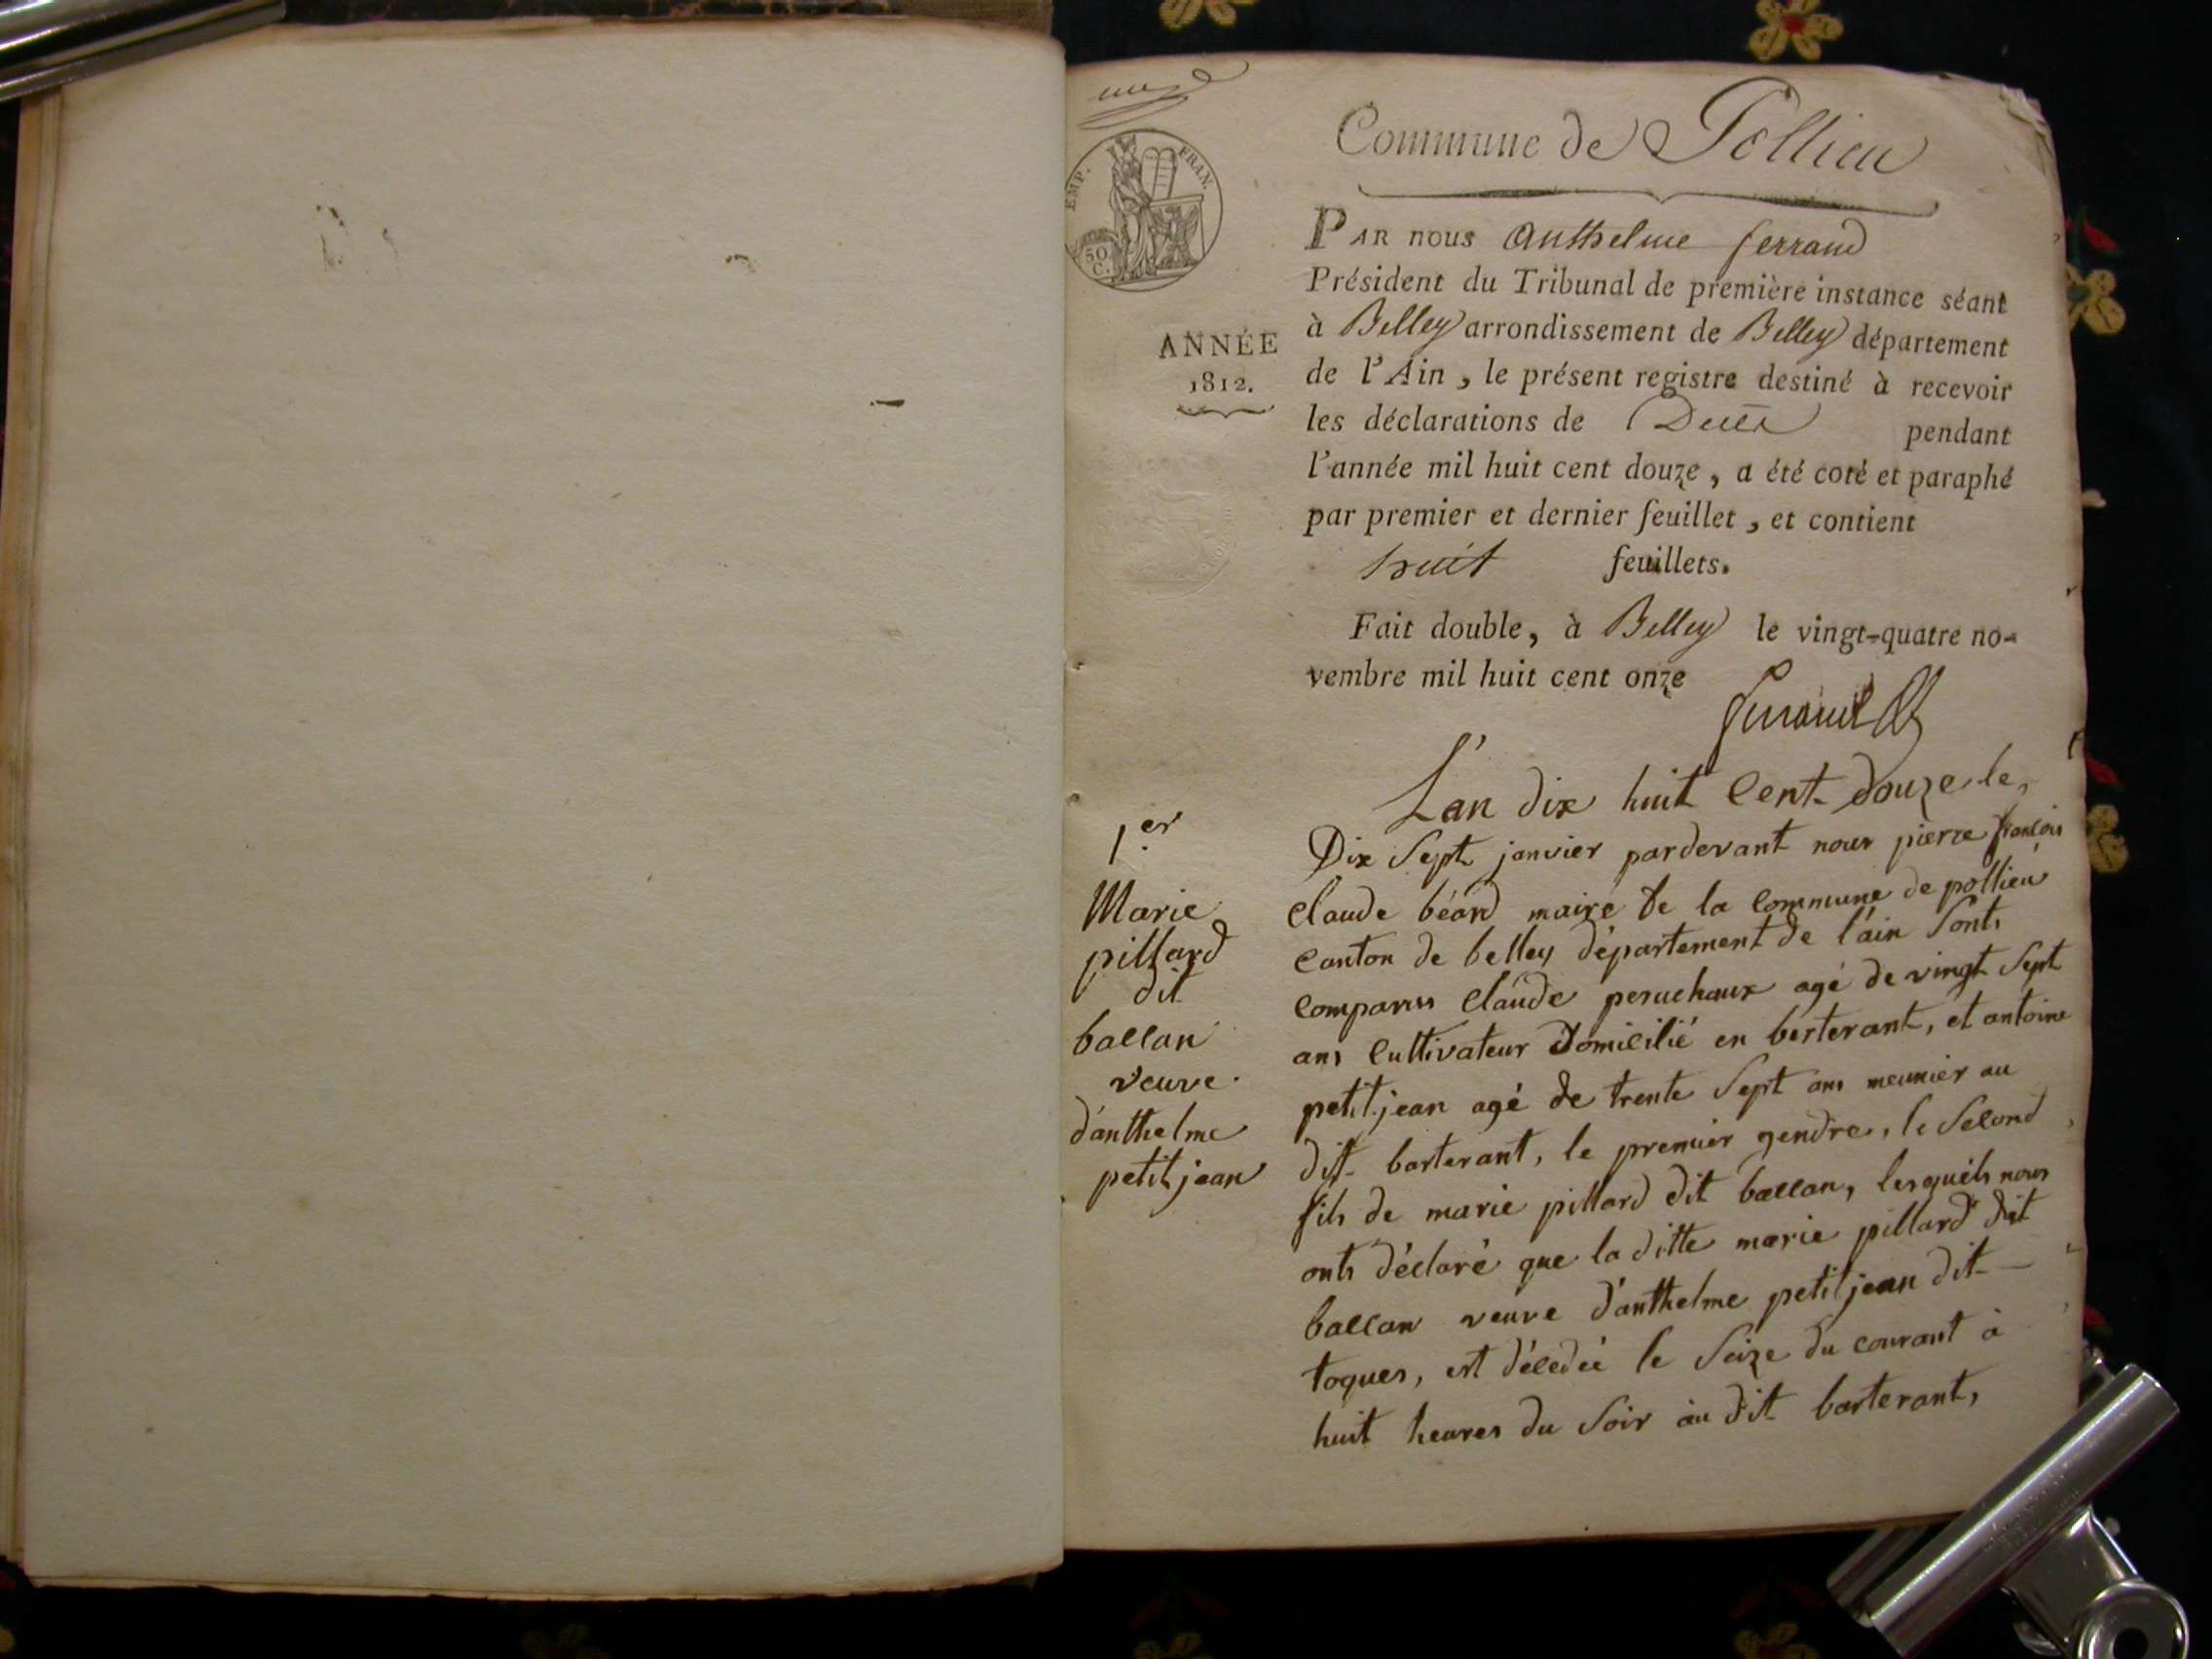 une
EMP. FRAN.
50 C.
Commune de Pollieu
PAR nous Anthelme ferrand
Président du Tribunal de première instance séant
à Belley arrondissement de Belley département
de l'Ain, le présent registre destiné à recevoir
les déclarations de Décès pendant
l'année mil huit cent douze, a été coté et paraphé
par premier et dernier feuillet, et contient
huit feuillets.
Fait double, à Belley le vingt-quatre no-
vembre mil huit cent onze
ferrand
ANNÉE
1812.
1er
Marie
pillard
dit
ballan
veuve
d'anthelme
petitjean
L'an dix huit Cent douze le
Dix Sept janvier pardevant nous pierre françois
claude béard maire de la commune de pollieu
canton de belley département de l'ain Sonts
comparus Claude peruchaux agé de vingt Sept
ans Cultivateur domicilié en berterant, et antoine
petit.jean agé de trente Sept ans meunier au
dit barterant, le premier gendre, le Second
fils de marie pillard dit ballan, lesquels nous
onts déclaré que la ditte marie pillard dit
ballan veuve d'anthelme petitjean dit
toques, est décédée le Seize du courant à
huit heures du Soir au dit barterant,